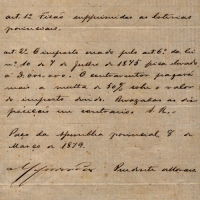 art. 1º Ficão supprimidas as loterias
provinciaes.
art. 2º O imposto creado pelo art 6º da lei
nº 10 de 7 de julho de 1875 fica elevado
à 3.000.000. O contraventor pagará
mais a multa de 50% sobre o valor
do imposto devido. Revogadas as dis
posições em contrario. S. R.
Paço da Assemblea provincial, 8 de
Março de 1879.
Prudente de Moraes